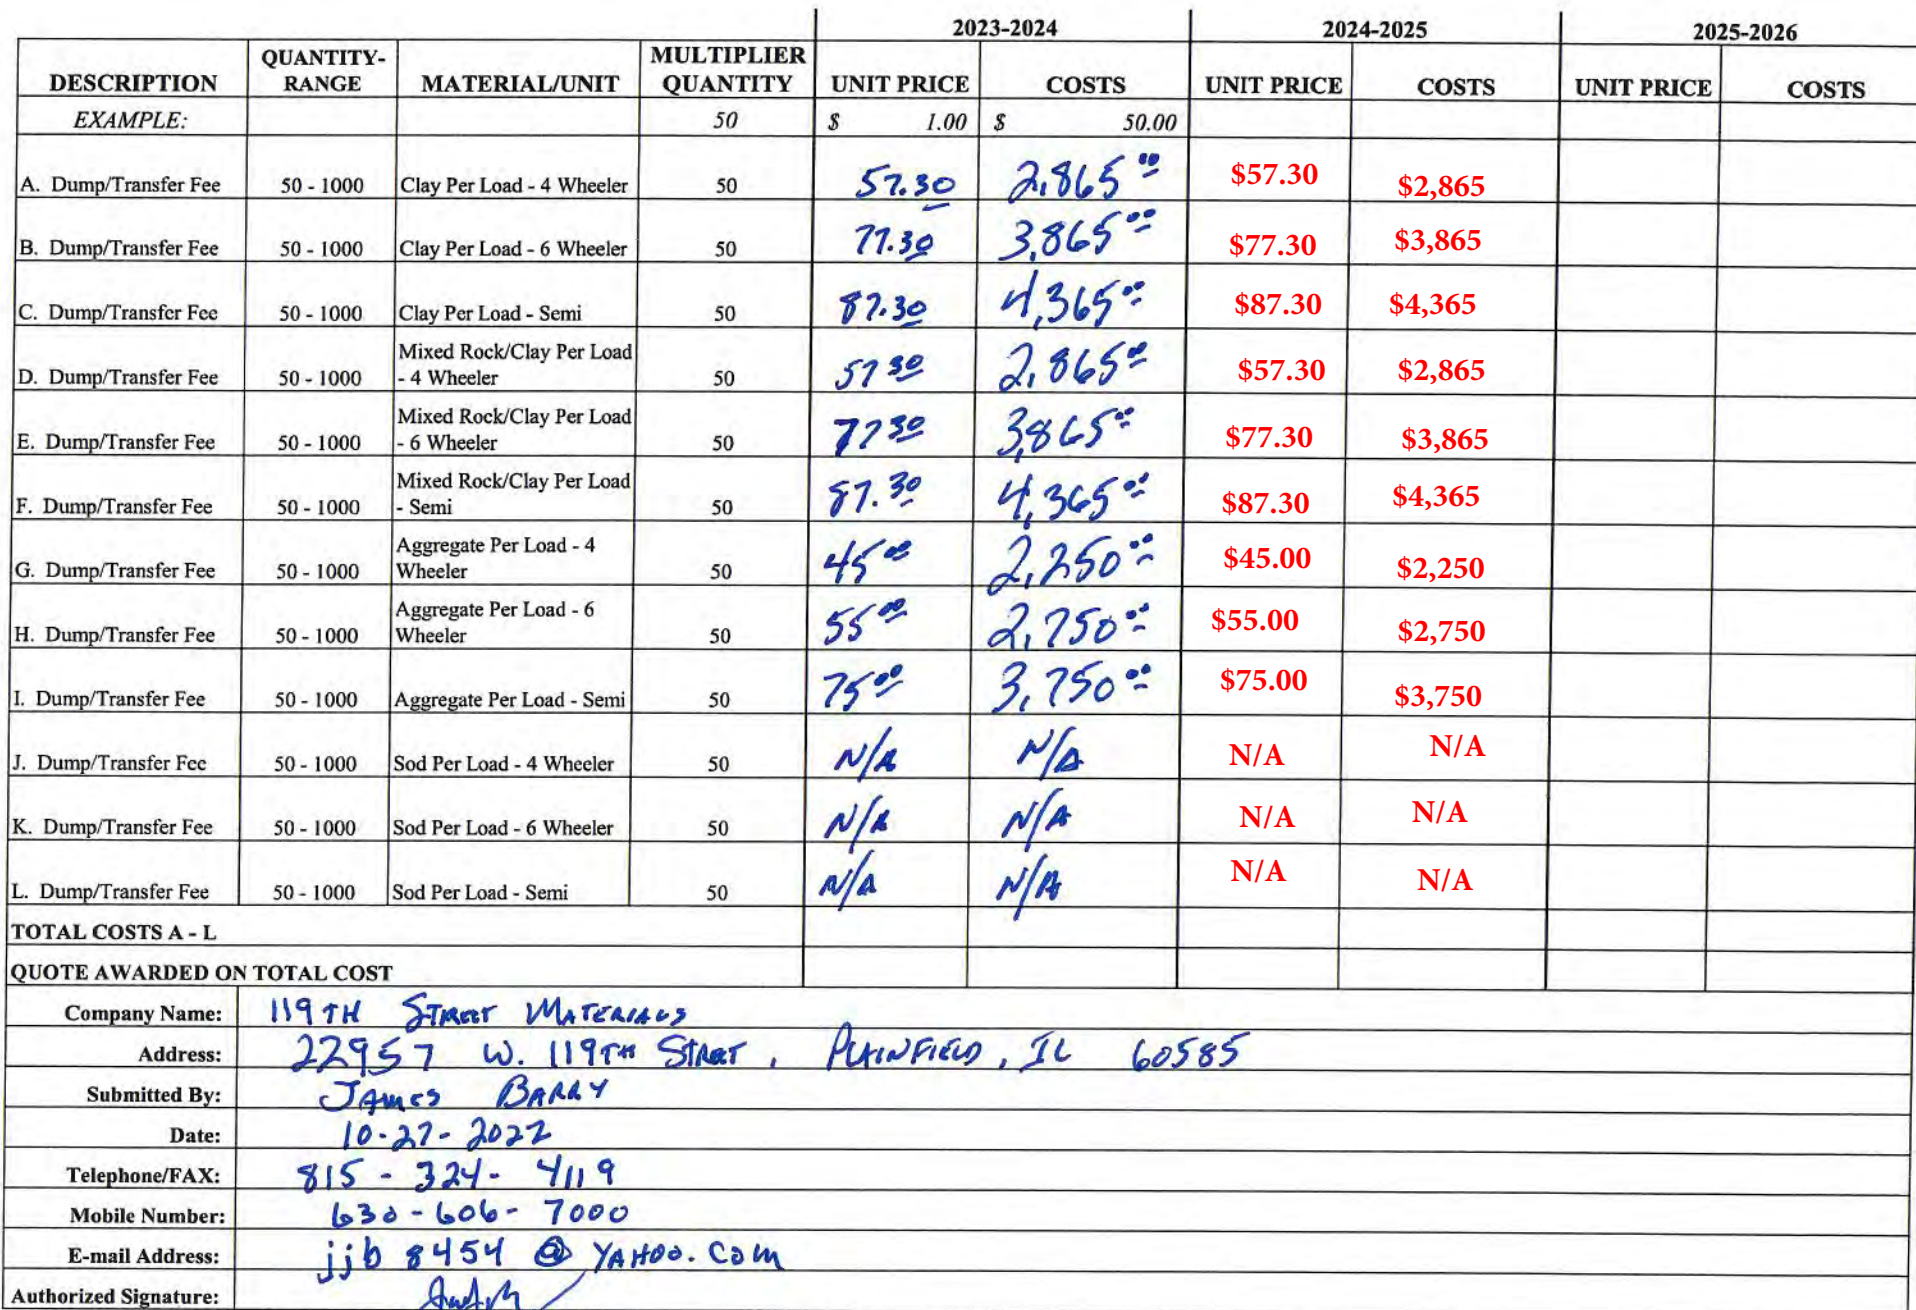 2023-2024 2024-2025 2025-2026
DESCRIPTION QUANTITY-RANGE MATERIAL/UNIT MULTIPLIER QUANTITY UNIT PRICE COSTS UNIT PRICE COSTS UNIT PRICE COSTS
EXAMPLE: 50 $ 1.00 $ 50.00
A. Dump/Transfer Fee 50 - 1000 Clay Per Load - 4 Wheeler 50 57.30 2,865.00 $57.30 $2,865
B. Dump/Transfer Fee 50 - 1000 Clay Per Load - 6 Wheeler 50 77.30 3,865.00 $77.30 $3,865
C. Dump/Transfer Fee 50 - 1000 Clay Per Load - Semi 50 87.30 4,365.00 $87.30 $4,365
D. Dump/Transfer Fee 50 - 1000 Mixed Rock/Clay Per Load - 4 Wheeler 50 57 30 2,865 00 $57.30 $2,865
E. Dump/Transfer Fee 50 - 1000 Mixed Rock/Clay Per Load - 6 Wheeler 50 77 30 3,865 00 $77.30 $3,865
F. Dump/Transfer Fee 50 - 1000 Mixed Rock/Clay Per Load - Semi 50 87.30 4,365 00 $87.30 $4,365
G. Dump/Transfer Fee 50 - 1000 Aggregate Per Load - 4 Wheeler 50 45 00 2,250 00 $45.00 $2,250
H. Dump/Transfer Fee 50 - 1000 Aggregate Per Load - 6 Wheeler 50 55 00 2,750 00 $55.00 $2,750
I. Dump/Transfer Fee 50 - 1000 Aggregate Per Load - Semi 50 75 00 3,750 00 $75.00 $3,750
J. Dump/Transfer Fee 50 - 1000 Sod Per Load - 4 Wheeler 50 N/A N/A N/A N/A
K. Dump/Transfer Fee 50 - 1000 Sod Per Load - 6 Wheeler 50 N/A N/A N/A N/A
L. Dump/Transfer Fee 50 - 1000 Sod Per Load - Semi 50 N/A N/A N/A N/A
TOTAL COSTS A - L
QUOTE AWARDED ON TOTAL COST
Company Name: 119TH STREET MATERIALS
Address: 22957 W. 119TH STREET, PLAINFIELD, IL 60585
Submitted By: JAMES BARRY
Date: 10-27-2022
Telephone/FAX: 815-324-4119
Mobile Number: 630-606-7000
E-mail Address: jjb8454@YAHOO.COM
Authorized Signature: